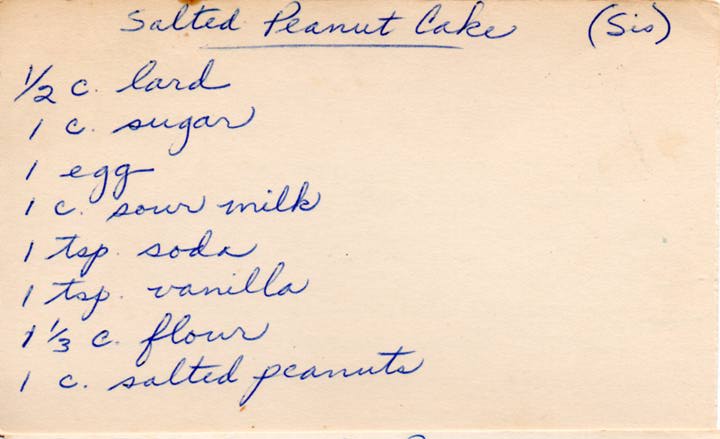 Salted Peanut Cake (Sis)
1/2 c. lard
1 c. sugar
1 egg
1 c. sour milk
1 tsp. soda
1 tsp. vanilla
1 1/3 c. flour
1 c. salted peanuts